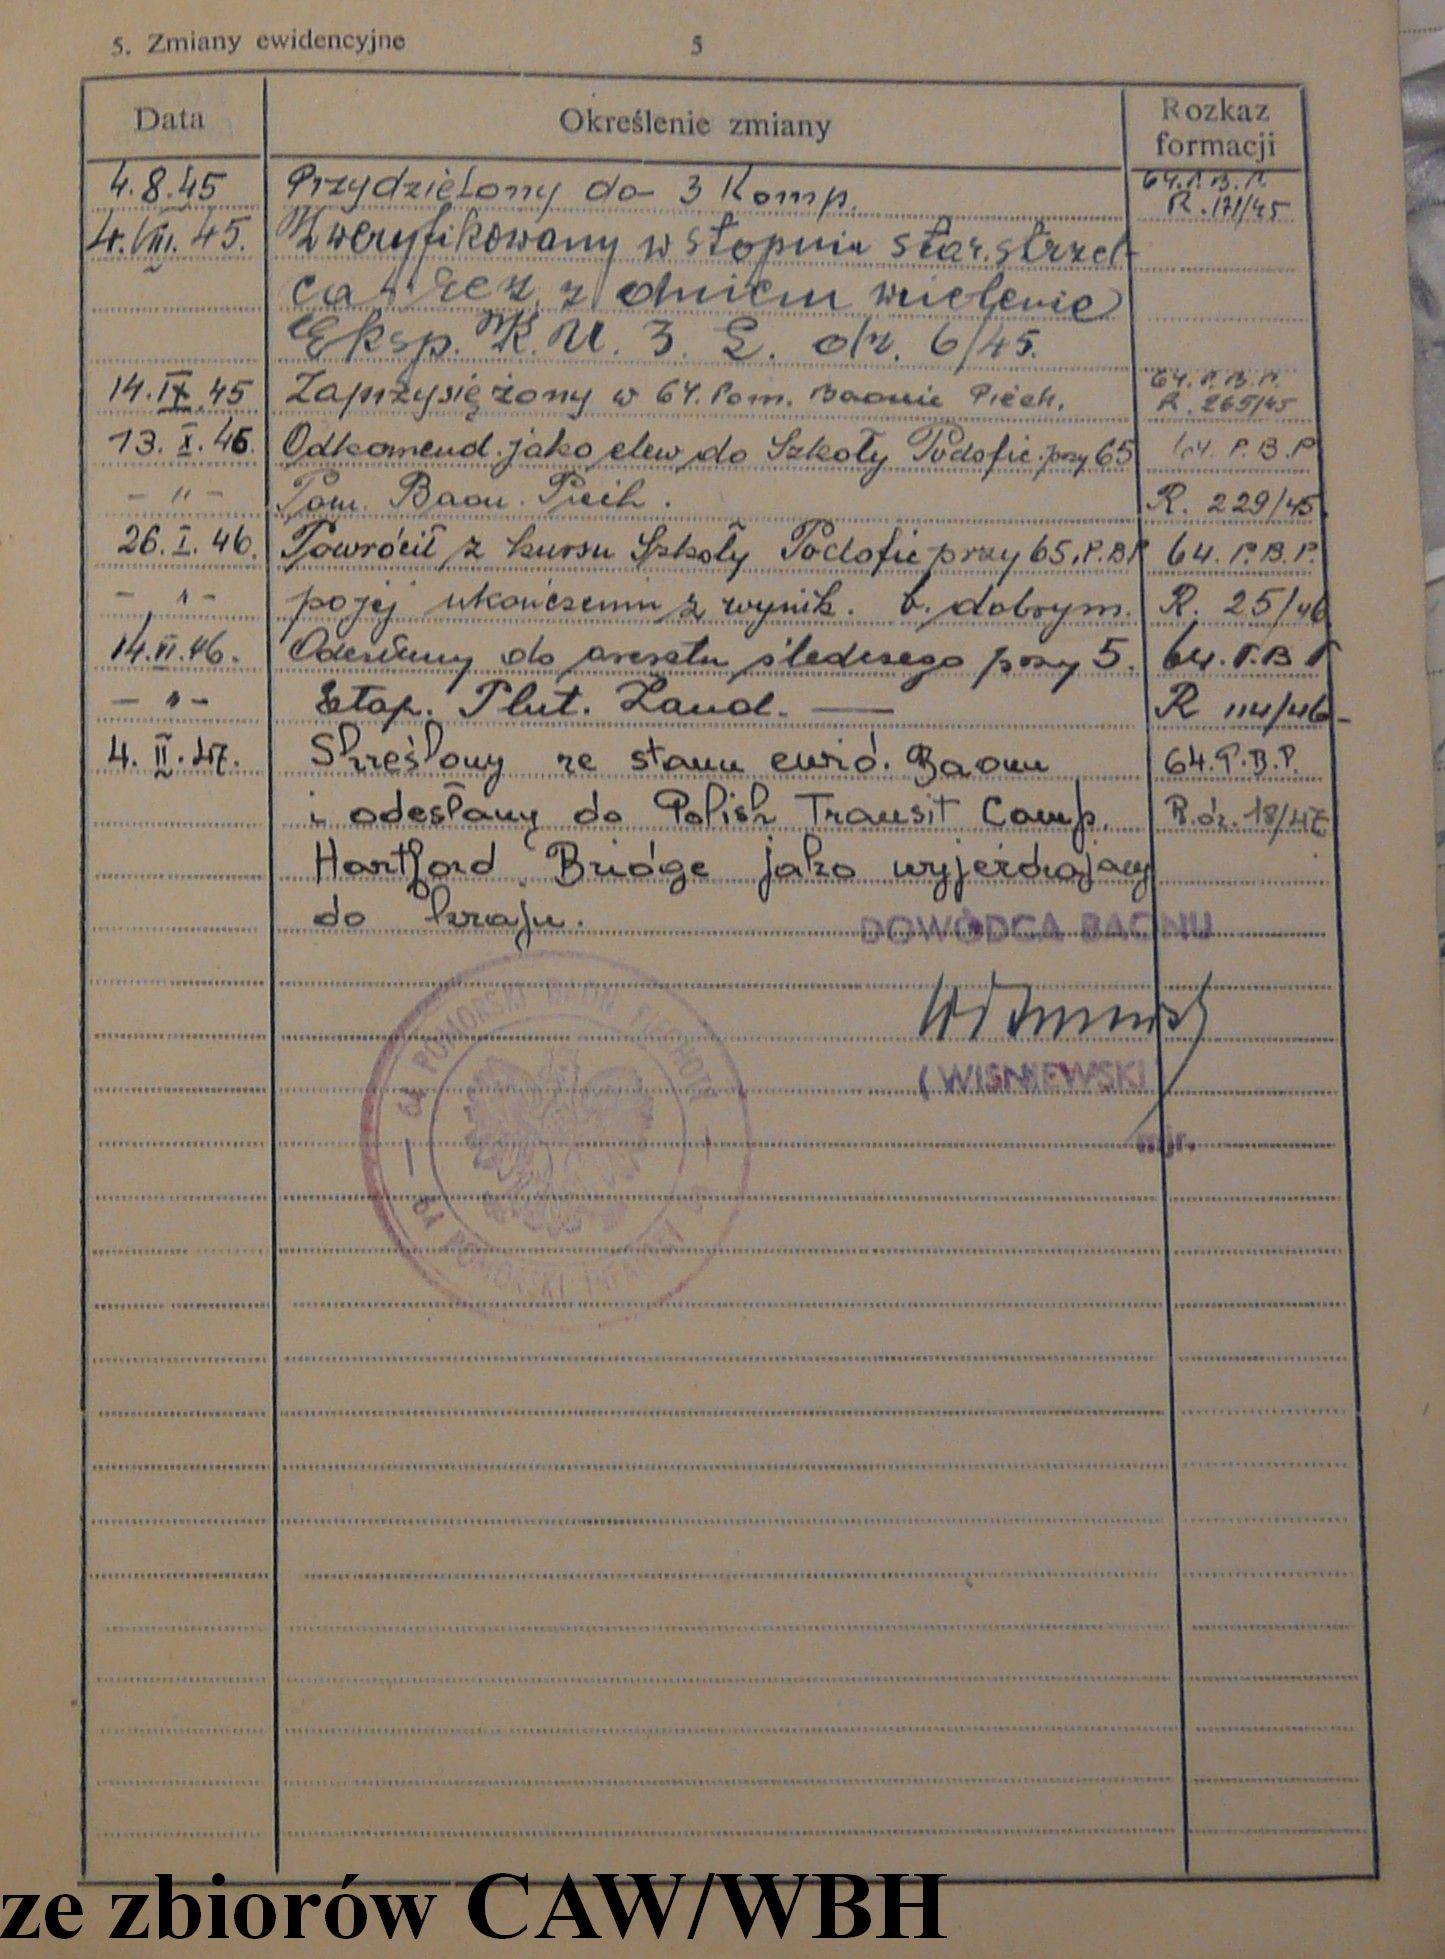 5. Zmiany ewidencyjne 5
Data Określenie zmiany Rozkaz formacji
4.8.45 Przydzielony do 3 Komp. 64.P.B.P.
R. 171/45
4.VIII.45. Zweryfikowany w stopniu star. strzel-
ca rez. z dniem wcielenia
Eksp. P.K.U. 3. L. dz. 6/45.
14.IX.45 Zaprzysiężony w 64. Pom. Baonie Piech. 64.P.B.P.
R. 265/45
13.X.45. Odkomend. jako elew do Szkoły Podofic. przy 65 64. P.B.P
- " - Pom. Baon. Piech. R. 229/45
26.I.46. Powrócił z kursu Szkoły Podofic przy 65.P.B.P 64.P.B.P.
- " - po jej ukończeniu z wynik. b. dobrym. R. 25/46
14.VI.46. Odesłany do aresztu śledczego przy 5. 64.P.B.P
- " - Etap. Plut. Żand. — R 114/46-
4.II.47. Skreślony ze stanu ewid. Baonu 64.P.B.P.
i odesłany do Polish Transit Camp, R.dz. 18/47
Hartford Bridge jako wyjeżdżający
do kraju.
DOWÓDCA BAONU
(WIŚNIEWSKI
mjr.
64 POMORSKI BAON PIECHOTY
64 POMORSKI INFANTRY
ze zbiorów CAW/WBH